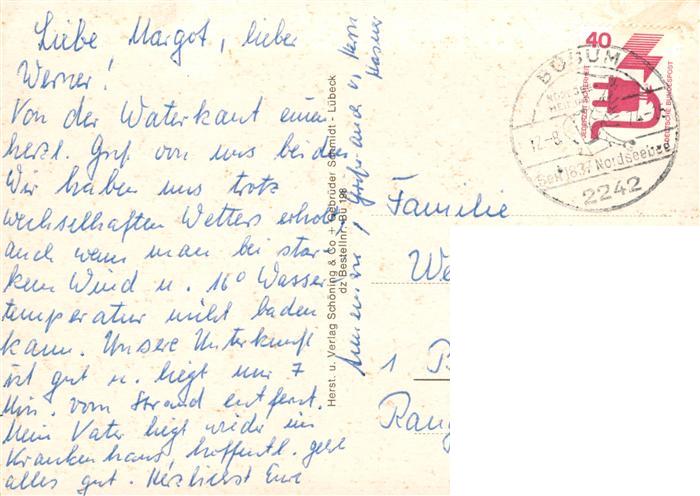 Liebe Margot, lieber
Werner!
Von der Waterkant einen
herzl. Gruß von uns beiden
Wir haben uns trotz
wechselhaften Wetters erholt,
auch wenn man bei star-
kem Wind u. 16° Wasser
temperatur nicht baden
kann. Unsere Unterkunft
ist gut u. liegt nur 7
Min. vom Strand entfernt.
Mein Vater liegt wieder im
Krankenhaus, hoffentl. geht
alles gut. Herzlichst Eure
Grüße auch v. Herrn
Herst. u. Verlag Schöning & Co + Gebrüder Schmidt - Lübeck
dz Bestellnr. Bü 198
40
JEDERZEIT SICHERHEIT
DEUTSCHE BUNDESPOST
BÜSUM
NORDSEE
HEIL
12-8
Seit 1837 Nordseebad
2242
Familie
We
1 B
Rang